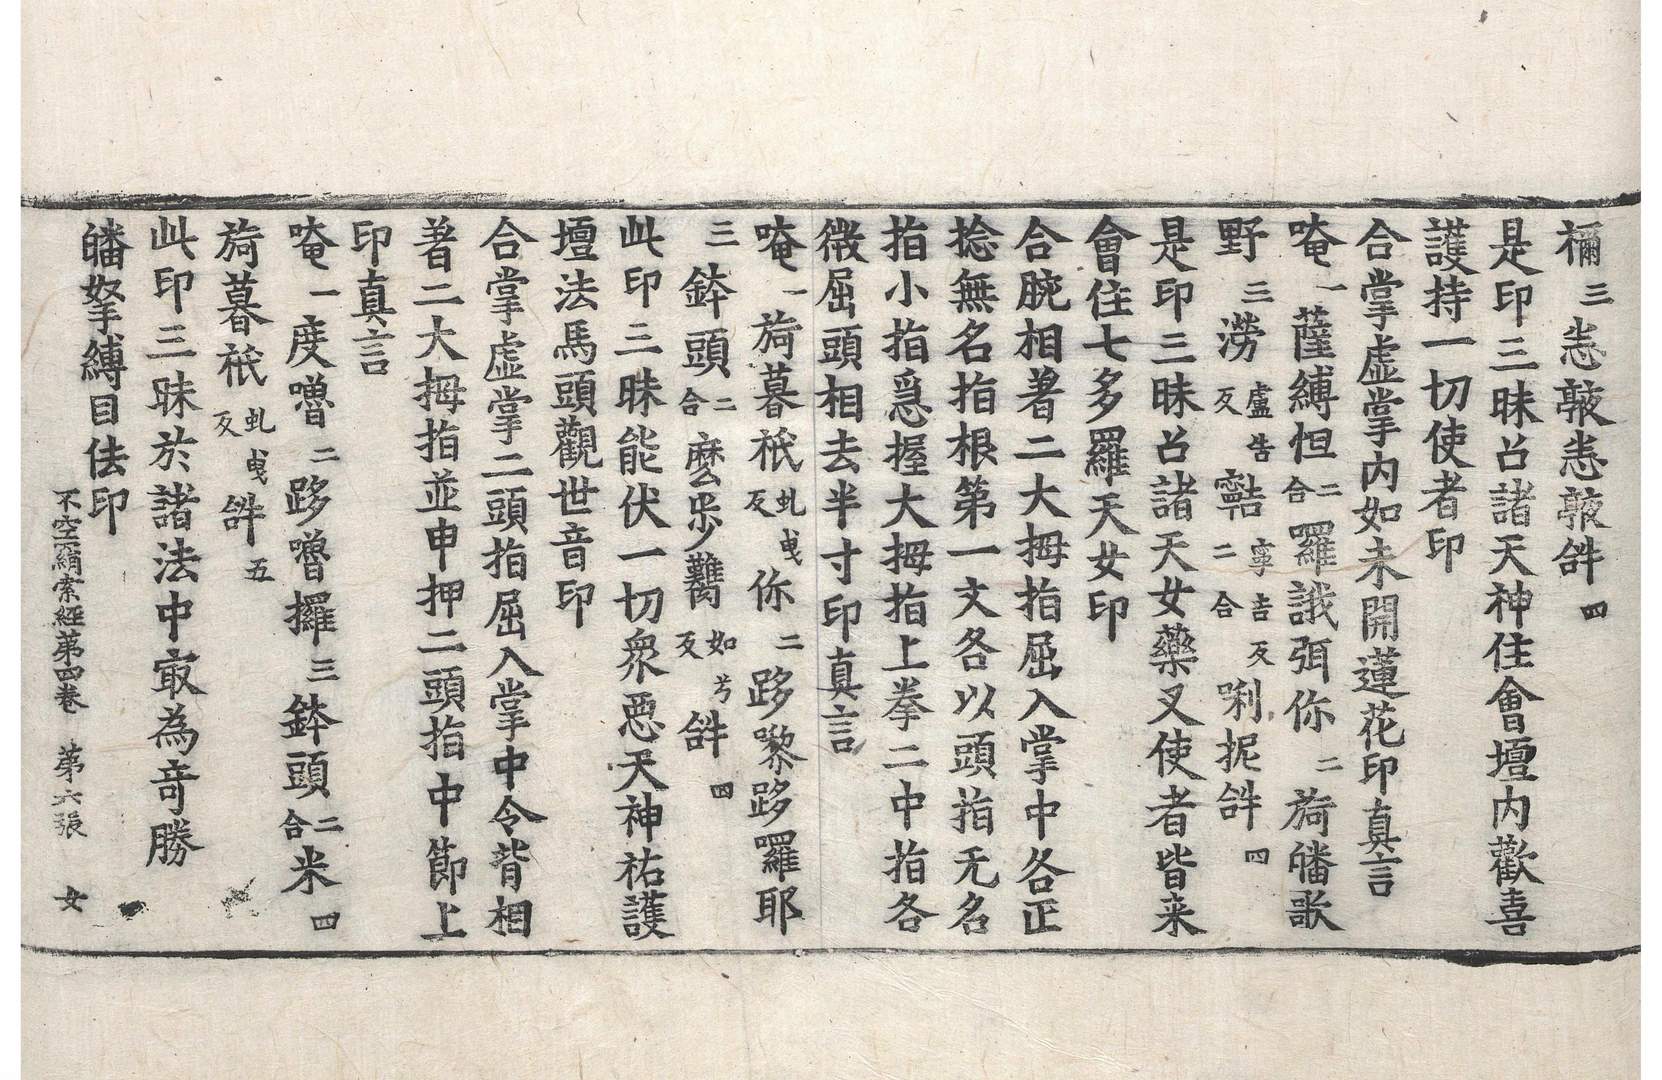 禰三恚㰠恚㰠𤙖四
是印三昧召諸天神住會壇内歡喜
護持一切使者印
合掌虛掌内如未開蓮花印真言
唵一薩縛怛二合羅誐弭你二旖皤歌
野三澇盧告反𩆷寧吉反二合唎抳𤙖四
是印三昧召諸天女藥叉使者皆来
會住七多羅天女印
合腕相著二大拇指屈入掌中各正
捻無名指根第一文各以頭指无名
指小指急握大拇指上拳二中指各
微屈頭相去半寸印真言
唵一旖暮袛虬曳反你二跢嚟跢羅耶
三鉢頭二合麽步䪜如兮反𤙖四
此印三昧能伏一切衆惡天神祐護
壇法馬頭觀世音印
合掌虛掌二頭指屈入掌中令背相
著二大拇指並申押二頭指中節上
印真言
唵一度嚕二跢嚕攞三鉢頭二合米四
旖暮袛虬曳反𤙖五
此印三昧於諸法中㝡為竒勝
皤拏縛目佉印
不空羂索經第四卷 第六張 女